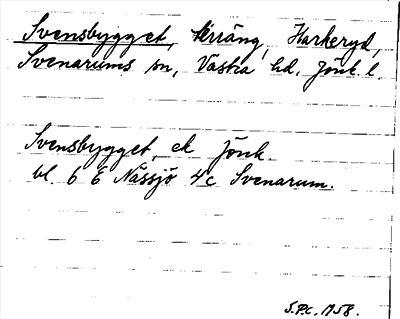 Svensbygget, terräng, Harkeryd,
Svenarums sn, Västra hd, Jönk. l.
Svensbygget, ek Jönk.
bl. 6 E Nässjö 4c Svenarum.
S.P.C. 1958.